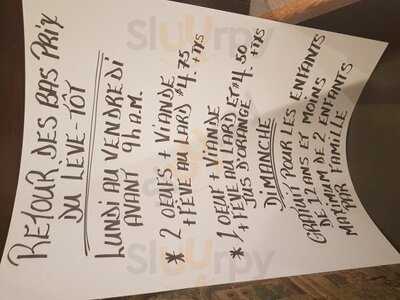 RETOUR DES BAS PRIX
DU LÈVE-TÔT
LUNDI AU VENDREDI
AVANT 9h A.M.
* 2 OEUFS + VIANDE
+ FÈVE AU LARD $4.75
+TXS
* 1 OEUF + VIANDE
+ FÈVE AU LARD ET $4.50
JUS D'ORANGE +TXS
DIMANCHE
GRATUIT POUR LES ENFANTS
DE 12 ANS ET MOINS
MAXIMUM DE 2 ENFANTS
PAR FAMILLE
Sluurpy
Sluurpy